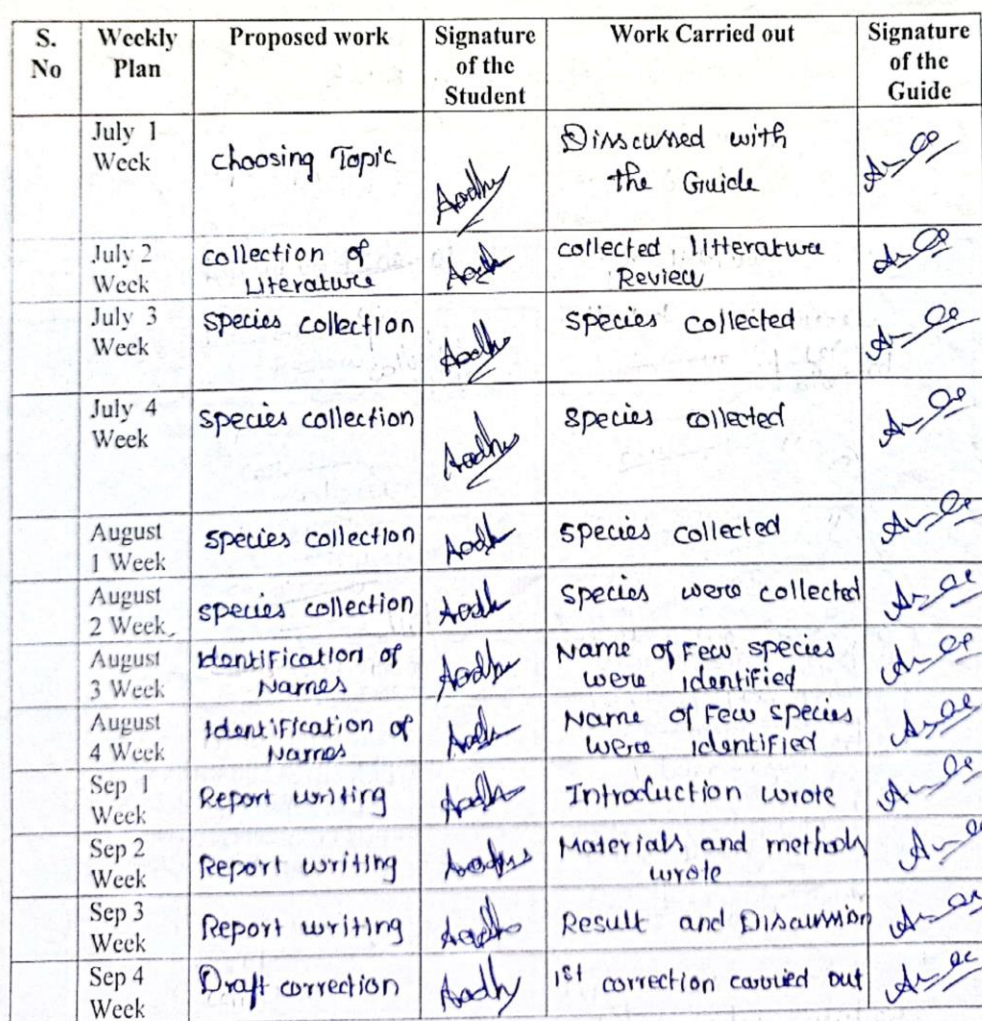 S. No Weekly Plan Proposed work Signature of the Student Work Carried out Signature of the Guide
July 1 Week choosing Topic Aadhy Discussed with the Guide
July 2 Week collection of Literature collected litterature Review
July 3 Week Species collection Species collected
July 4 Week Species collection Species collected
August 1 Week Species collection Species collected
August 2 Week Species collection Species were collected
August 3 Week Identification of Names Name of Few species were identified
August 4 Week Identification of Names Name of Few species were identified
Sep 1 Week Report writing Introduction wrote
Sep 2 Week Report writing Materials and methods wrote
Sep 3 Week Report writing Result and Discussion
Sep 4 Week Draft correction Aadhy 1st correction carried out